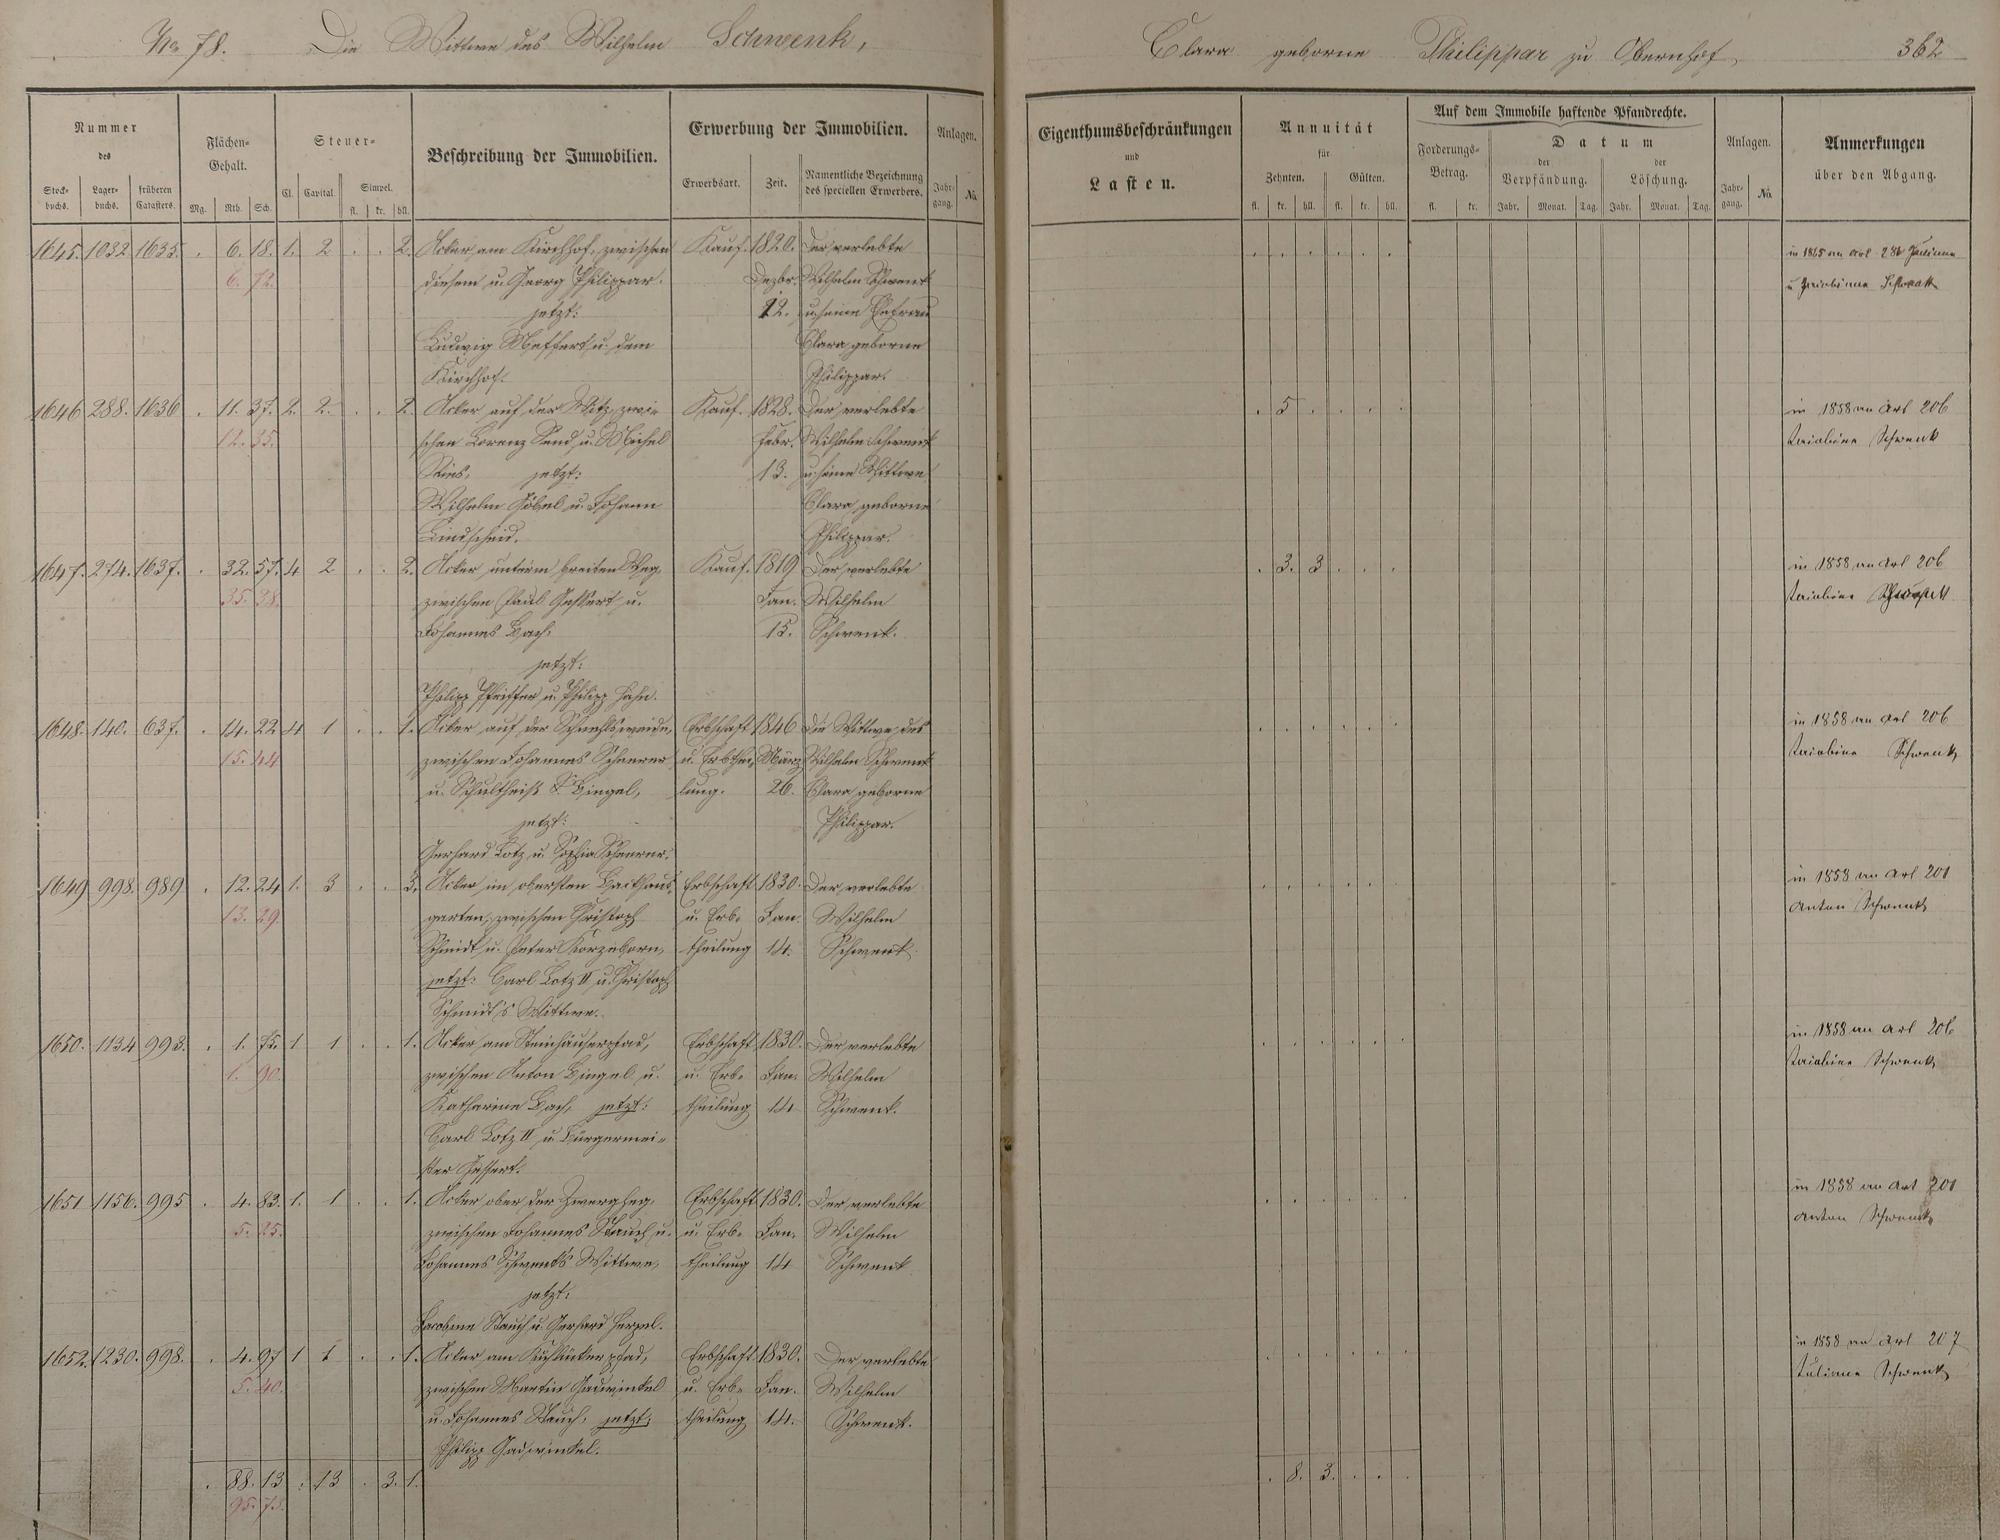 No 78. Die Wittwe des Wilhelm Schwenk,
Clara geborne Philippar zu Obernhof. 362
Nummer
des
Stock-
buchs.
Lager-
buchs.
früheren
Catasters.
Flächen-
Gehalt.
Mg. Rth. Sch.
Steuer-
Cl. Capital.
Simpel.
fl. kr. hll.
Beschreibung der Immobilien.
Erwerbung der Immobilien.
Erwerbsart. Zeit.
Namentliche Bezeichnung
des speciellen Erwerbers.
Anlagen.
Jahr-
gang. No
Eigenthumsbeschränkungen
und
Lasten.
Annuität
für
Zehnten. Gülten.
fl. kr. hll. fl. kr. hll.
Auf dem Immobile haftende Pfandrechte.
Forderungs-
Betrag.
fl. kr.
Datum
der
Verpfändung.
der
Löschung.
Jahr. Monat. Tag. Jahr. Monat. Tag.
Anlagen.
Jahr-
gang. No
Anmerkungen
über den Abgang.
1645. 1032. 1635. . 6. 18. 1. 2 . . 2. Acker am Kirchhof, zwischen Kauf. 1820. Der verlebte
6. 72. diesem u. Georg Philippar. Dezbr. Wilhelm Schwenk
jetzt: 12. u. seine Ehefrau
Ludwig Meffert u. dem Clara geborne
Kirchhof. Philippar.
in 1865 an Art
Schwenk
1646 288. 1636 . 11. 37. 2. 2. . . 2. Acker auf der zwi- Kauf. 1828. Der verlebte 5
12. 35. schen Lorenz u. Michel Febr. Wilhelm Schwenk
jetzt: 13. u. seine Wittwe
Wilhelm Göbel u. Johann Clara geborne
Lindscheid. Philippar.
in 1858 an Art 206
Jacobine Schwenk
1647. 274. 1637. . 32. 57. 4 2 . . 2. Acker unterm breiten Weg, Kauf. 1819 Der verlebte 3. 3
35. 38. zwischen Paul Gessert u. Jan. Wilhelm
Johannes Bach, 15. Schwenk.
jetzt:
Philipp Pfeiffer u. Philipp Hahn.
in 1858 an Art 206
Jacobine Schwenk
1648. 140. 637. . 14. 22 4 1 . . 1. Acker auf der Erbschaft 1846 Die Wittwe des
15. 44 zwischen Johannes Scheerer u. Erbthei- März Wilhelm Schwenk
u. Schultheiß Bingel, lung. 26. Clara geborne
jetzt: Philippar.
Gerhard Lotz u. Sophia Scheerer.
in 1858 an Art 206
Jacobine Schwenk
1649 998. 989 . 12. 24 1. 3 . . 3. Acker im obersten Backhaus- Erbschaft 1830. Der verlebte
13. 29. garten, zwischen Christoph u. Erb- Jan. Wilhelm
Schmidt u. Peter Korzeborn, theilung 14. Schwenk.
jetzt: Carl Lotz II u. Christoph
Schmidt's Wittwe.
in 1858 an Art 201
Anton Schwenk
1650. 1134 993. . 1. 75. 1 1 . . 1. Acker am Steinhäuserpfad, Erbschaft 1830. Der verlebte
1. 90. zwischen Anton Bingel u. u. Erb- Jan. Wilhelm
Katharina Bach, jetzt: theilung 14 Schwenk.
Carl Lotz II u. Bürgermei-
ster Gessert.
in 1858 an Art 206
Jacobine Schwenk
1651 1156. 995 . 4. 83. 1. 1 . . 1. Acker ober der Erbschaft 1830. Der verlebte
5. 25. zwischen Johannes Stauch u. u. Erb- Jan. Wilhelm
Johannes Schwenk's Wittwe, theilung 14 Schwenk
jetzt:
Jacobine Stauch u. Gerhard Herpel.
in 1858 an Art 201
Anton Schwenk
1652. 1230. 998. . 4. 97 1 1 . . 1. Acker am Erbschaft 1830. Der verlebte
5. 40. zwischen Martin Gadwinkel u. Erb- Jan. Wilhelm
u. Johannes Stauch, jetzt: theilung 14. Schwenk.
Philipp Gadwinkel.
in 1858 an Art 207
Juliane Schwenk
. 88. 13 . 13 . 3. 1. . 8. 3. . . .
95. 73.